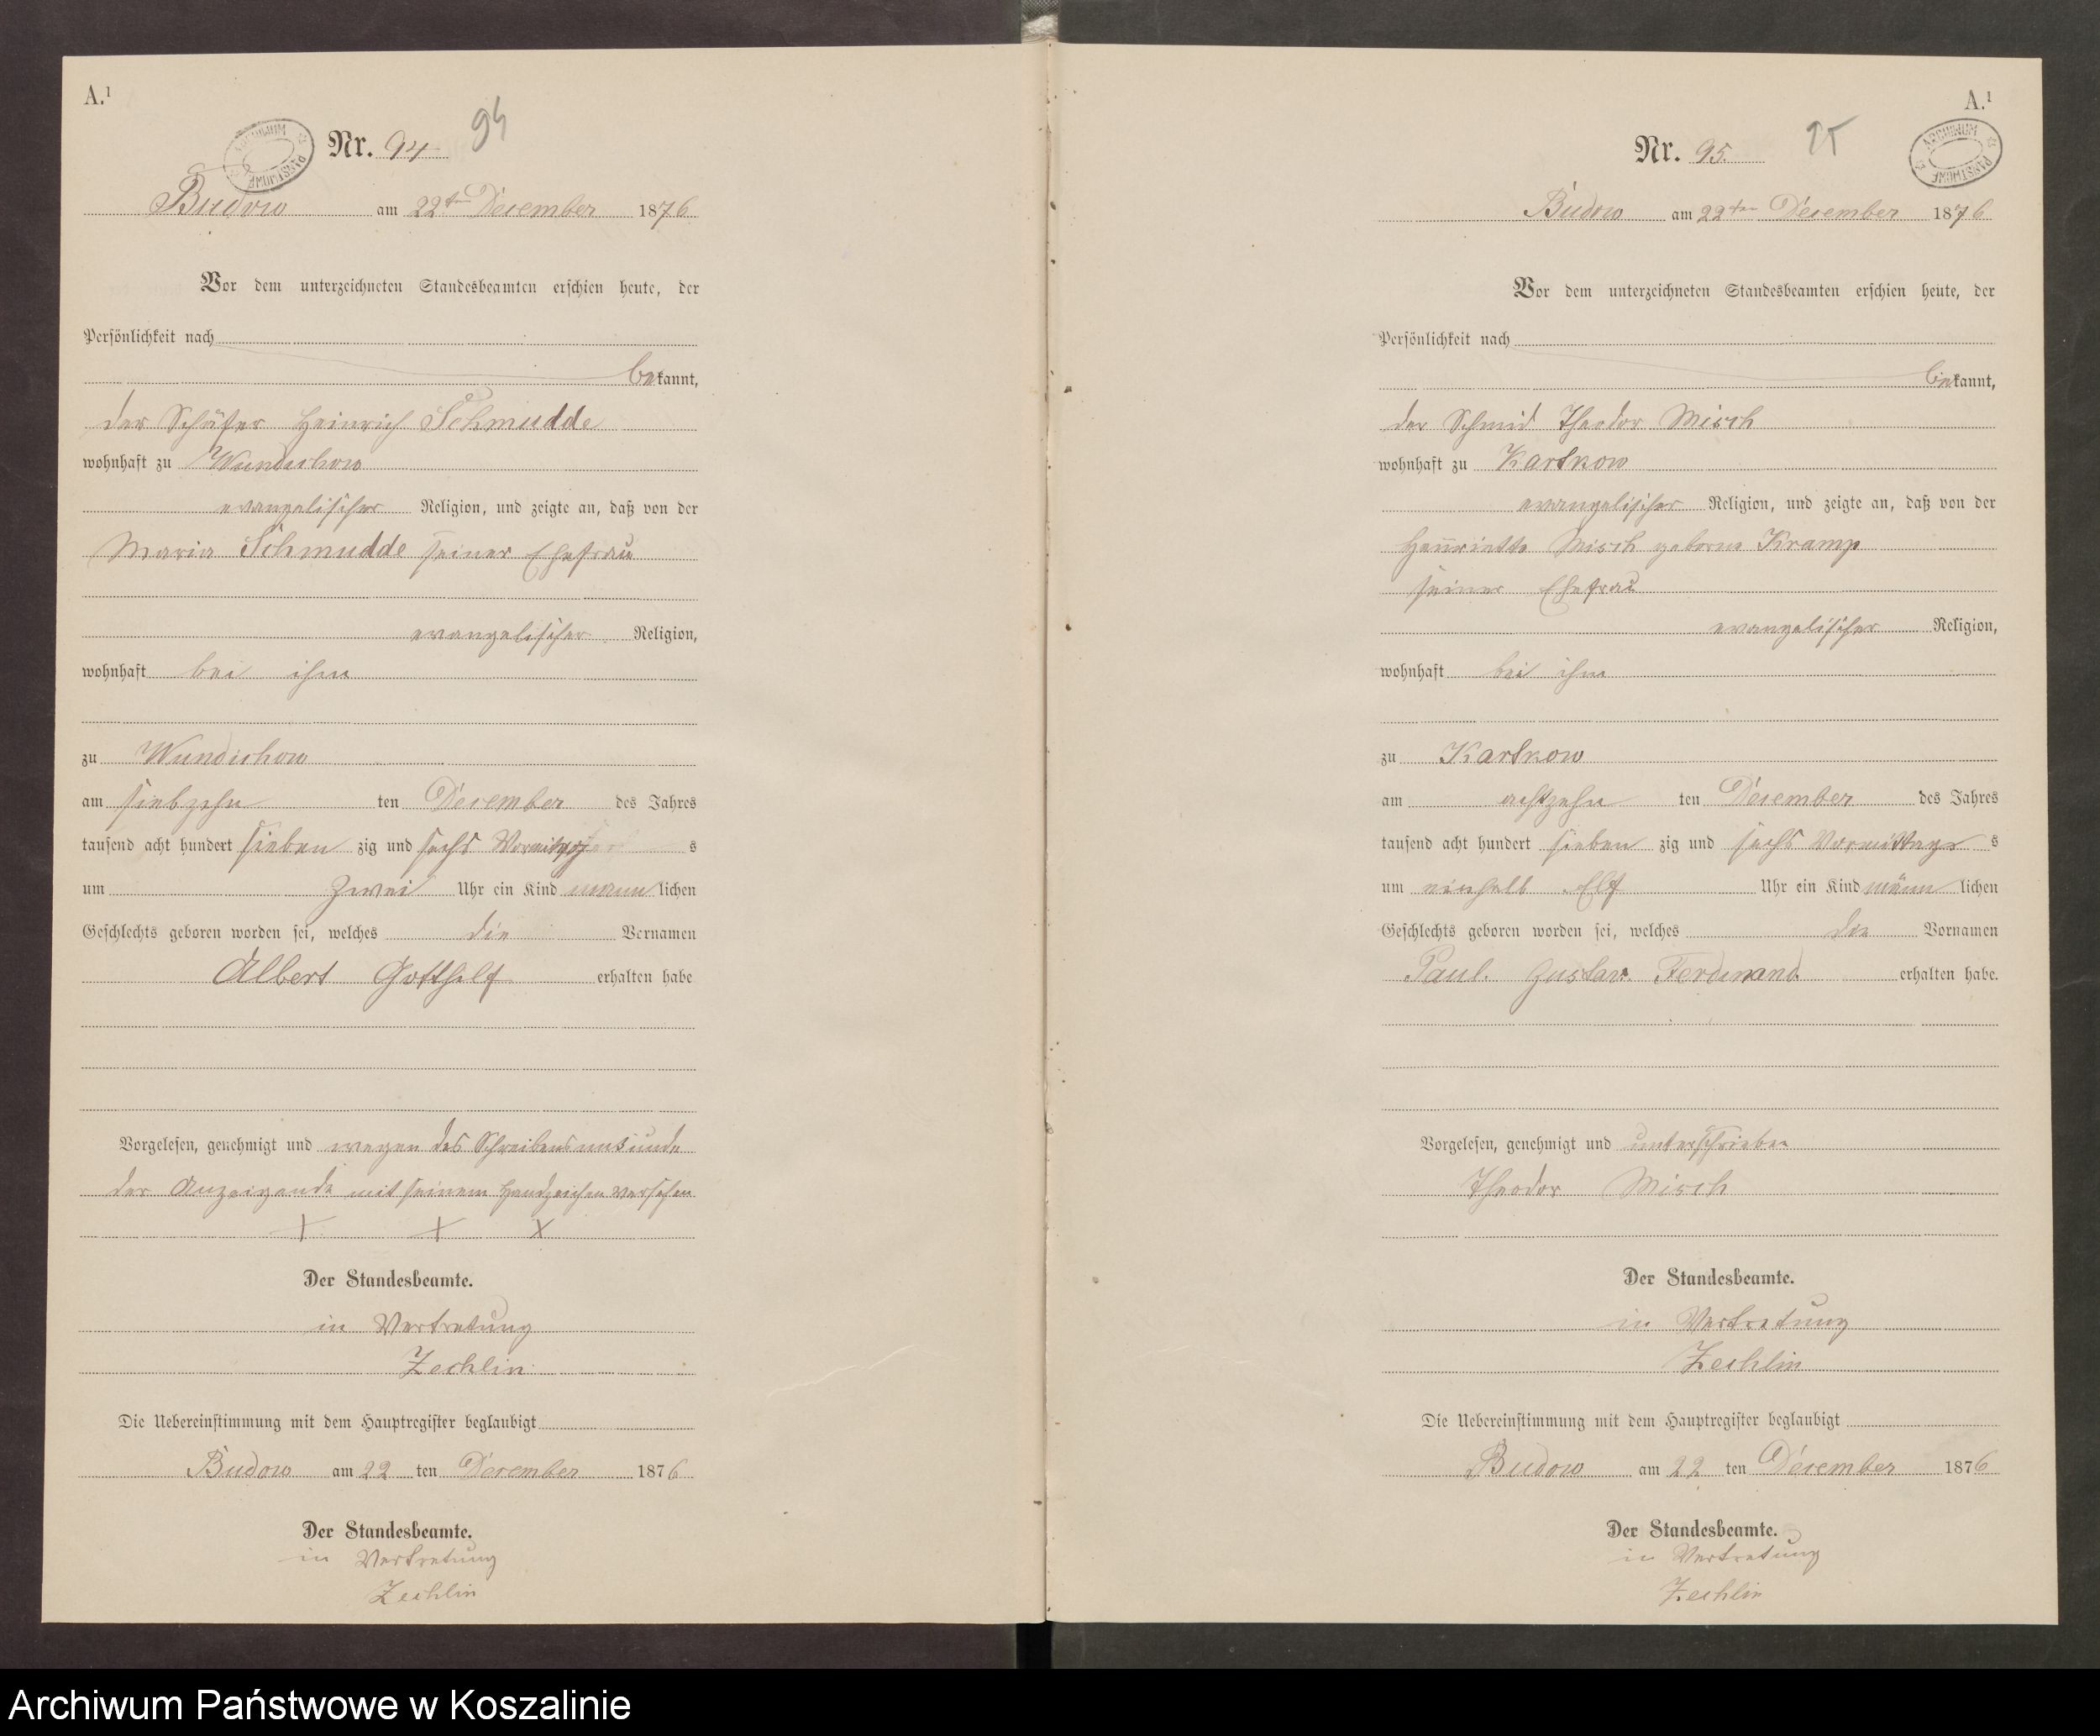 A.¹
ARCHIWUM PAŃSTWOWE
Nr. 94
94
Budow am 22ten December 1876
Vor dem unterzeichneten Standesbeamten erschien heute, der
Persönlichkeit nach
bekannt,
der Schäfer Heinrich Schmudde
wohnhaft zu Wundichow
evangelischer Religion, und zeigte an, daß von der
Maria Schmudde seiner Ehefrau
evangelischer Religion,
wohnhaft bei ihm
zu Wundichow
am siebzehn ten December des Jahres
tausend acht hundert sieben zig und sechs Vormittag s
um zwei Uhr ein Kind mann lichen
Geschlechts geboren worden sei, welches die Vornamen
Albert Gotthelf erhalten habe
Vorgelesen, genehmigt und wegen des Schreibens
der Anzeigende mit seinem Handzeichen versehen
+ + x
Der Standesbeamte.
in Vertretung
Zechlin
Die Uebereinstimmung mit dem Hauptregister beglaubigt
Budow am 22 ten December 1876
Der Standesbeamte.
in Vertretung
Zechlin
A.¹
ARCHIWUM PAŃSTWOWE
Nr. 95.
95
Budow am 22ten December 1876
Vor dem unterzeichneten Standesbeamten erschien heute, der
Persönlichkeit nach
bekannt,
der Schmid Theodor Misch
wohnhaft zu Kartkow
evangelischer Religion, und zeigte an, daß von der
Henriette Misch geborne Kramp
seiner Ehefrau
evangelischer Religion,
wohnhaft bei ihm
zu Kartkow
am achtzehn ten December des Jahres
tausend acht hundert sieben zig und sechs Vormittags s
um einhalb Elf Uhr ein Kind männ lichen
Geschlechts geboren worden sei, welches die Vornamen
Paul. Gustav. Ferdinand. erhalten habe.
Vorgelesen, genehmigt und unterschrieben
Theodor Misch
Der Standesbeamte.
in Vertretung
Zechlin
Die Uebereinstimmung mit dem Hauptregister beglaubigt
Budow am 22 ten December 1876
Der Standesbeamte.
in Vertretung
Zechlin
Archiwum Państwowe w Koszalinie